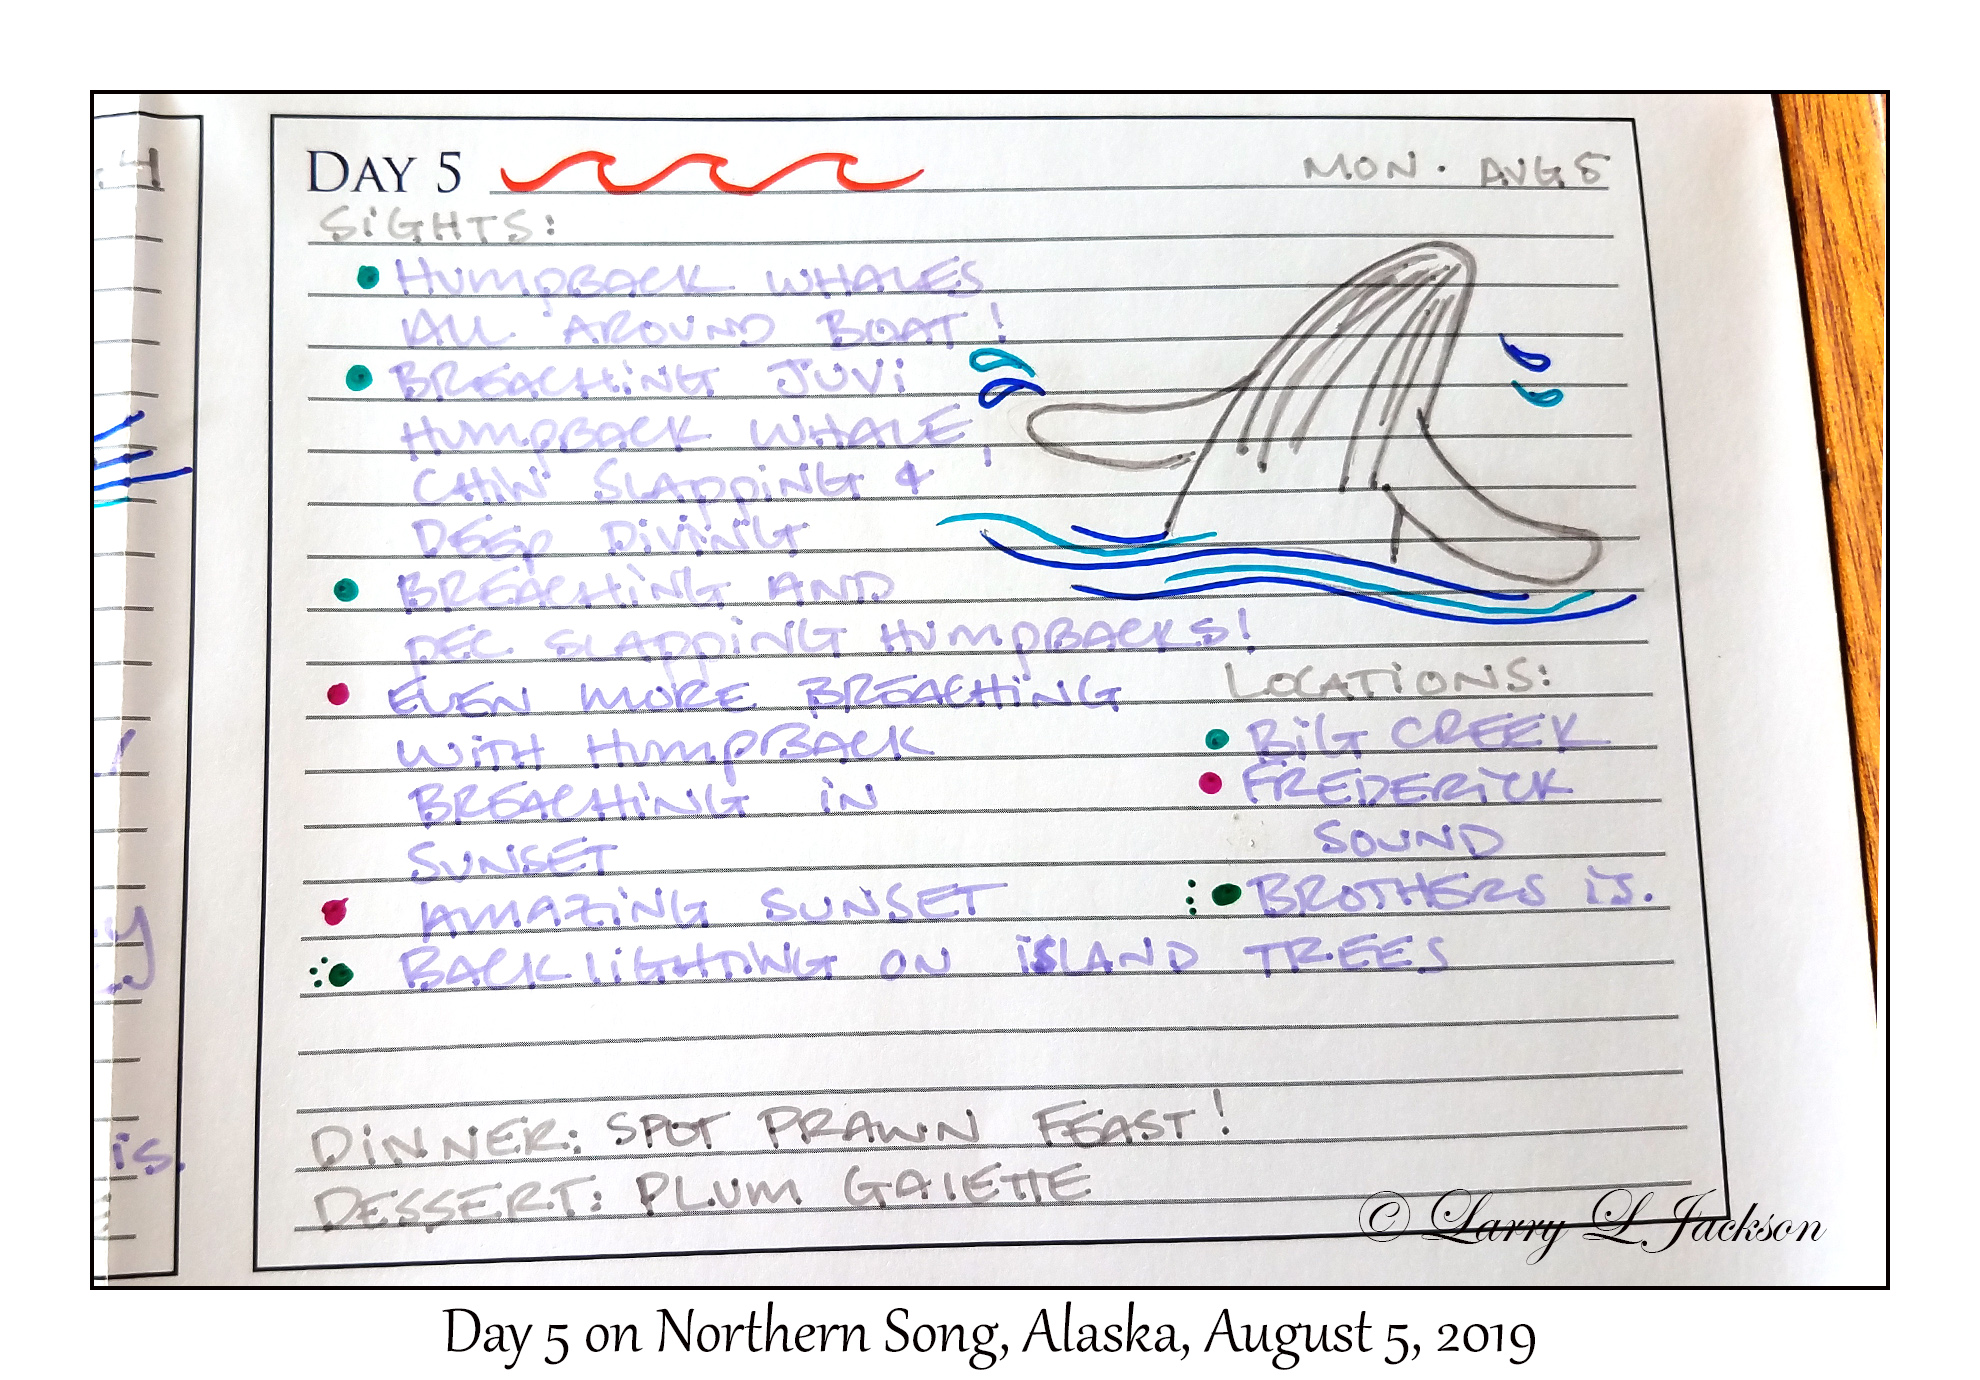 DAY 5
MON. AUG 5
SIGHTS:
HUMPBACK WHALES
ALL AROUND BOAT!
BREACHING JUVI
HUMPBACK WHALE,
CHIN SLAPPING & !
DEEP DIVING
BREACHING AND
PEC SLAPPING HUMPBACKS!
EVEN MORE BREACHING
WITH HUMPBACK
BREACHING IN
SUNSET
AMAZING SUNSET
BACKLIGHTING ON ISLAND TREES
LOCATIONS:
BIG CREEK
FREDERICK
SOUND
BROTHERS IS.
DINNER: SPOT PRAWN FEAST!
DESSERT: PLUM GALETTE
4
y
is.
© Larry L Jackson
Day 5 on Northern Song, Alaska, August 5, 2019